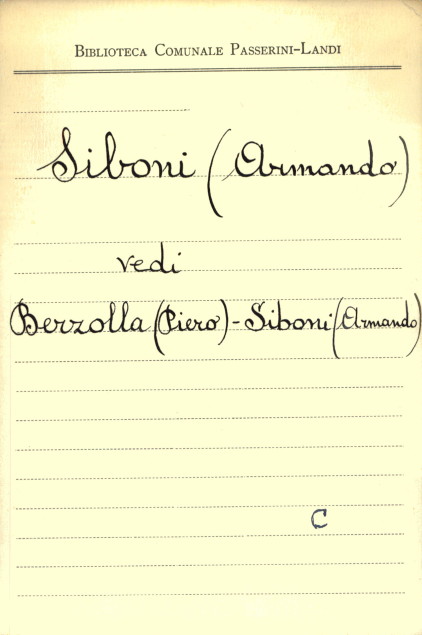 Biblioteca Comunale Passerini-Landi
Siboni (Armando)
vedi
Berzolla (Piero) - Siboni (Armando)
C